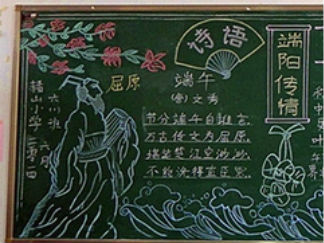 诗语
端阳传情
屈原
端午
(唐)文秀
节分端午自谁言
万古传文为屈原
堪笑楚江空渺渺
不能洗得直臣冤
六
班
六月
赭山小学